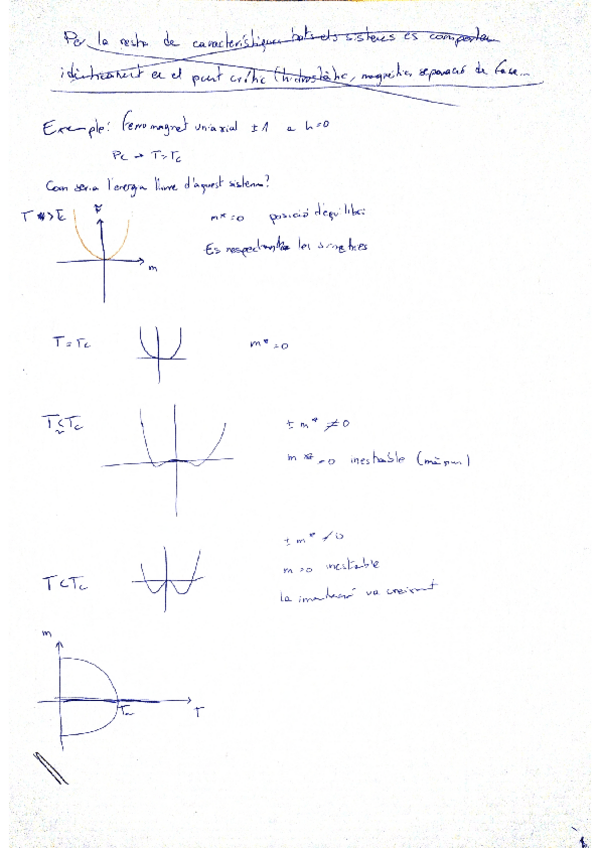 Per la resta de característiques tots els sistemes es comporten
idènticament en el punt crític (hidrostàtic, magnètic, separació de fase...
Exemple: Ferromagnet uniaxial ±1 a h=0
Pc → T=Tc
Com seria l'energia lliure d'aquest sistema?
F
m* = 0 posició d'equilibri
m
Es respecten les simetries
T = Tc
m* = 0
T ≲ Tc
± m* ≠ 0
m* = 0 inestable (màxim)
± m* ≠ 0
T < Tc
m = 0 inestable
la imantació va creixent
m
Tc
T